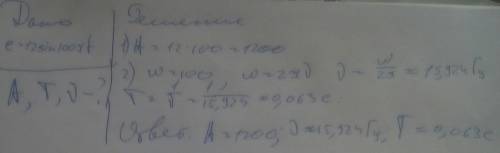 Дано
e=120sin100πt
A, T, ν-?
Решение
1) A = 12·100 = 1200
2) w=100, w=2πν ν = w/2π = 15,924 Гц
T = 1/ν = 1/15,924 = 0,063 с.
Ответ: A=1200; ν=15,924 Гц, T = 0,063 с.